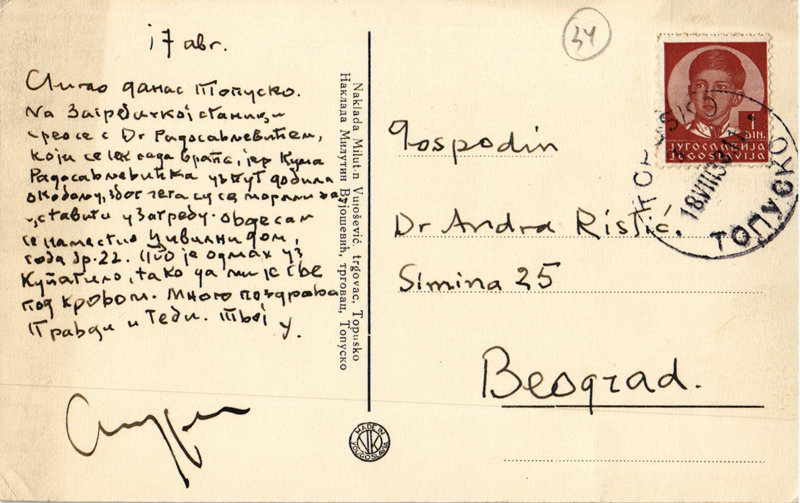 17 авг.
Стигао данас Топуско.
На Загребачкој станици
срео се с Dr Радосављевићем,
који се тек сада враћа, јер Кума
Радосављевићка у путу добила
због чега су се морали за-
уставити у Загребу. Овде сам
се наместио Цивилни дом,
соба бр. 22. Што је одмах уз
Купатило, тако да ми је све
под кровом. Много поздрава
Правди и Теби. Твој
34
Gospodin
Dr Andra Ristić.
Simina 25
Beograd.
Naklada Milutin Vujošević, trgovac, Topusko
Наклада Милутин Вујошевић, трговац, Топуско
1
DIN.
ЈУГОСЛАВИЈА
JUGOSLAVIJA
TOPUSKO
18.VIII.36
ТОПУСКО
MADE IN
YOUGOSLAVIA